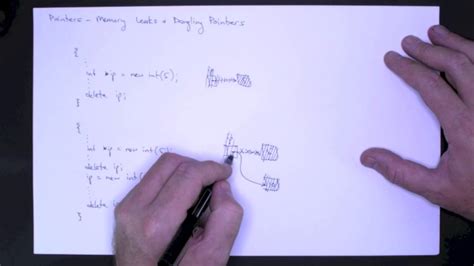 Pointers - Memory Leaks & Dangling Pointers
{
int *p = new int(5);
delete ip;
}
{
int *p = new int(5);
delete ip;
ip = new int(
delete ip;
}